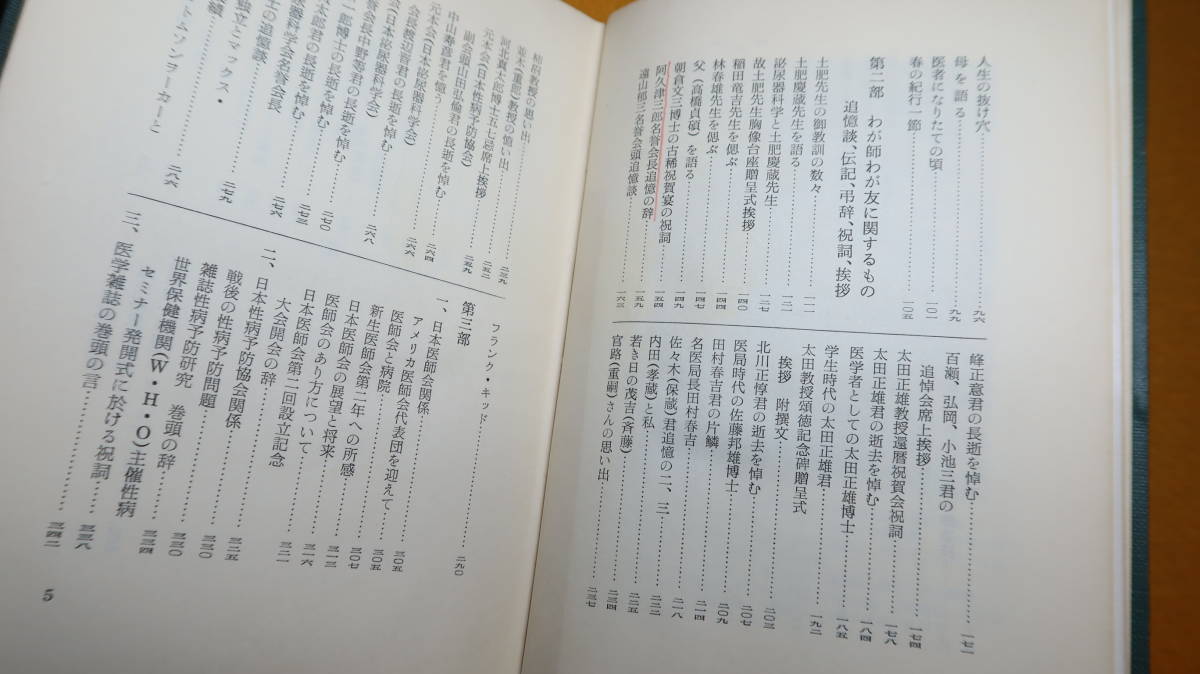 人生の抜け穴……九六
母を語る……九九
医者になりたての頃……一〇一
春の紀行一節……一〇五
第二部　わが師わが友に関するもの
追憶談、伝記、弔辞、祝詞、挨拶
土肥先生の御教訓の数々……一一一
土肥慶蔵先生を語る……一二一
泌尿器科学と土肥慶蔵先生……一二七
故土肥先生胸像台座贈呈式挨拶……一四〇
稲田竜吉先生を偲ぶ……一四四
林春雄先生を偲ぶ……一四七
父（高橋貞碩）を語る……一四九
朝倉文三博士の古稀祝賀宴の祝詞……一五四
阿久津三郎名誉会長追憶の辞……一五九
遠山郁三名誉会頭追憶談……一六三
峰正意君の長逝を悼む……一七一
百瀬、弘岡、小池三君の
追悼会席上挨拶……一七四
太田正雄教授還暦祝賀会祝詞……一七八
太田正雄君の逝去を悼む……一八四
医学者としての太田正雄博士……一八五
学生時代の太田正雄君……一九二
太田教授頌徳記念碑贈呈式
挨拶　附撰文……二〇三
北川正惇君の逝去を悼む……二〇七
医局時代の佐藤邦雄博士……二〇九
田村春吉君の片鱗……二一四
名医局長田村春吉……二一八
佐々木（保蔵）君追憶の二、三……二二二
内田（孝蔵）と私……二二五
若き日の茂吉（斉藤）……二三四
宮路（重嗣）さんの思い出……二三七
教授の思い出……二三九
並木（重郎）教授の憶い出……二五二
河北真太郎博士五七忌席上挨拶
元本会（日本性病予防協会）……二五九
副会頭山田弘倫君の長逝を悼む……二六四
中山寿彦君を憶う……二六六
元本会（日本泌尿器科学会）
会長渡辺晋君の長逝を悼む……二六八
会（日本泌尿器科学会）
会長中野等君の長逝を悼む……二七〇
一郎博士の長逝を悼む……二七三
太郎君の長逝を悼む……二七六
尿器科学会名誉会長
士の追憶談……二七九
独立とマックス・
績……二八六
トムソンヲーカーと
フランク・キッド……二九〇
第三部
一、日本医師会関係
アメリカ医師会代表団を迎えて……三〇五
医師会と病院……三〇五
新生医師会第二年への所感……三〇七
日本医師会の展望と将来……三一三
医師会のあり方について……三一六
日本医師会第二回設立記念
大会開会の辞……三二一
二、日本性病予防協会関係
戦後の性病予防問題……三二五
雑誌性病予防研究　巻頭の辞……三三〇
世界保健機関（W・H・O）主催性病
セミナー発開式に於ける祝詞……三三四
三、医学雑誌の巻頭の言……三三八
……三四二
5